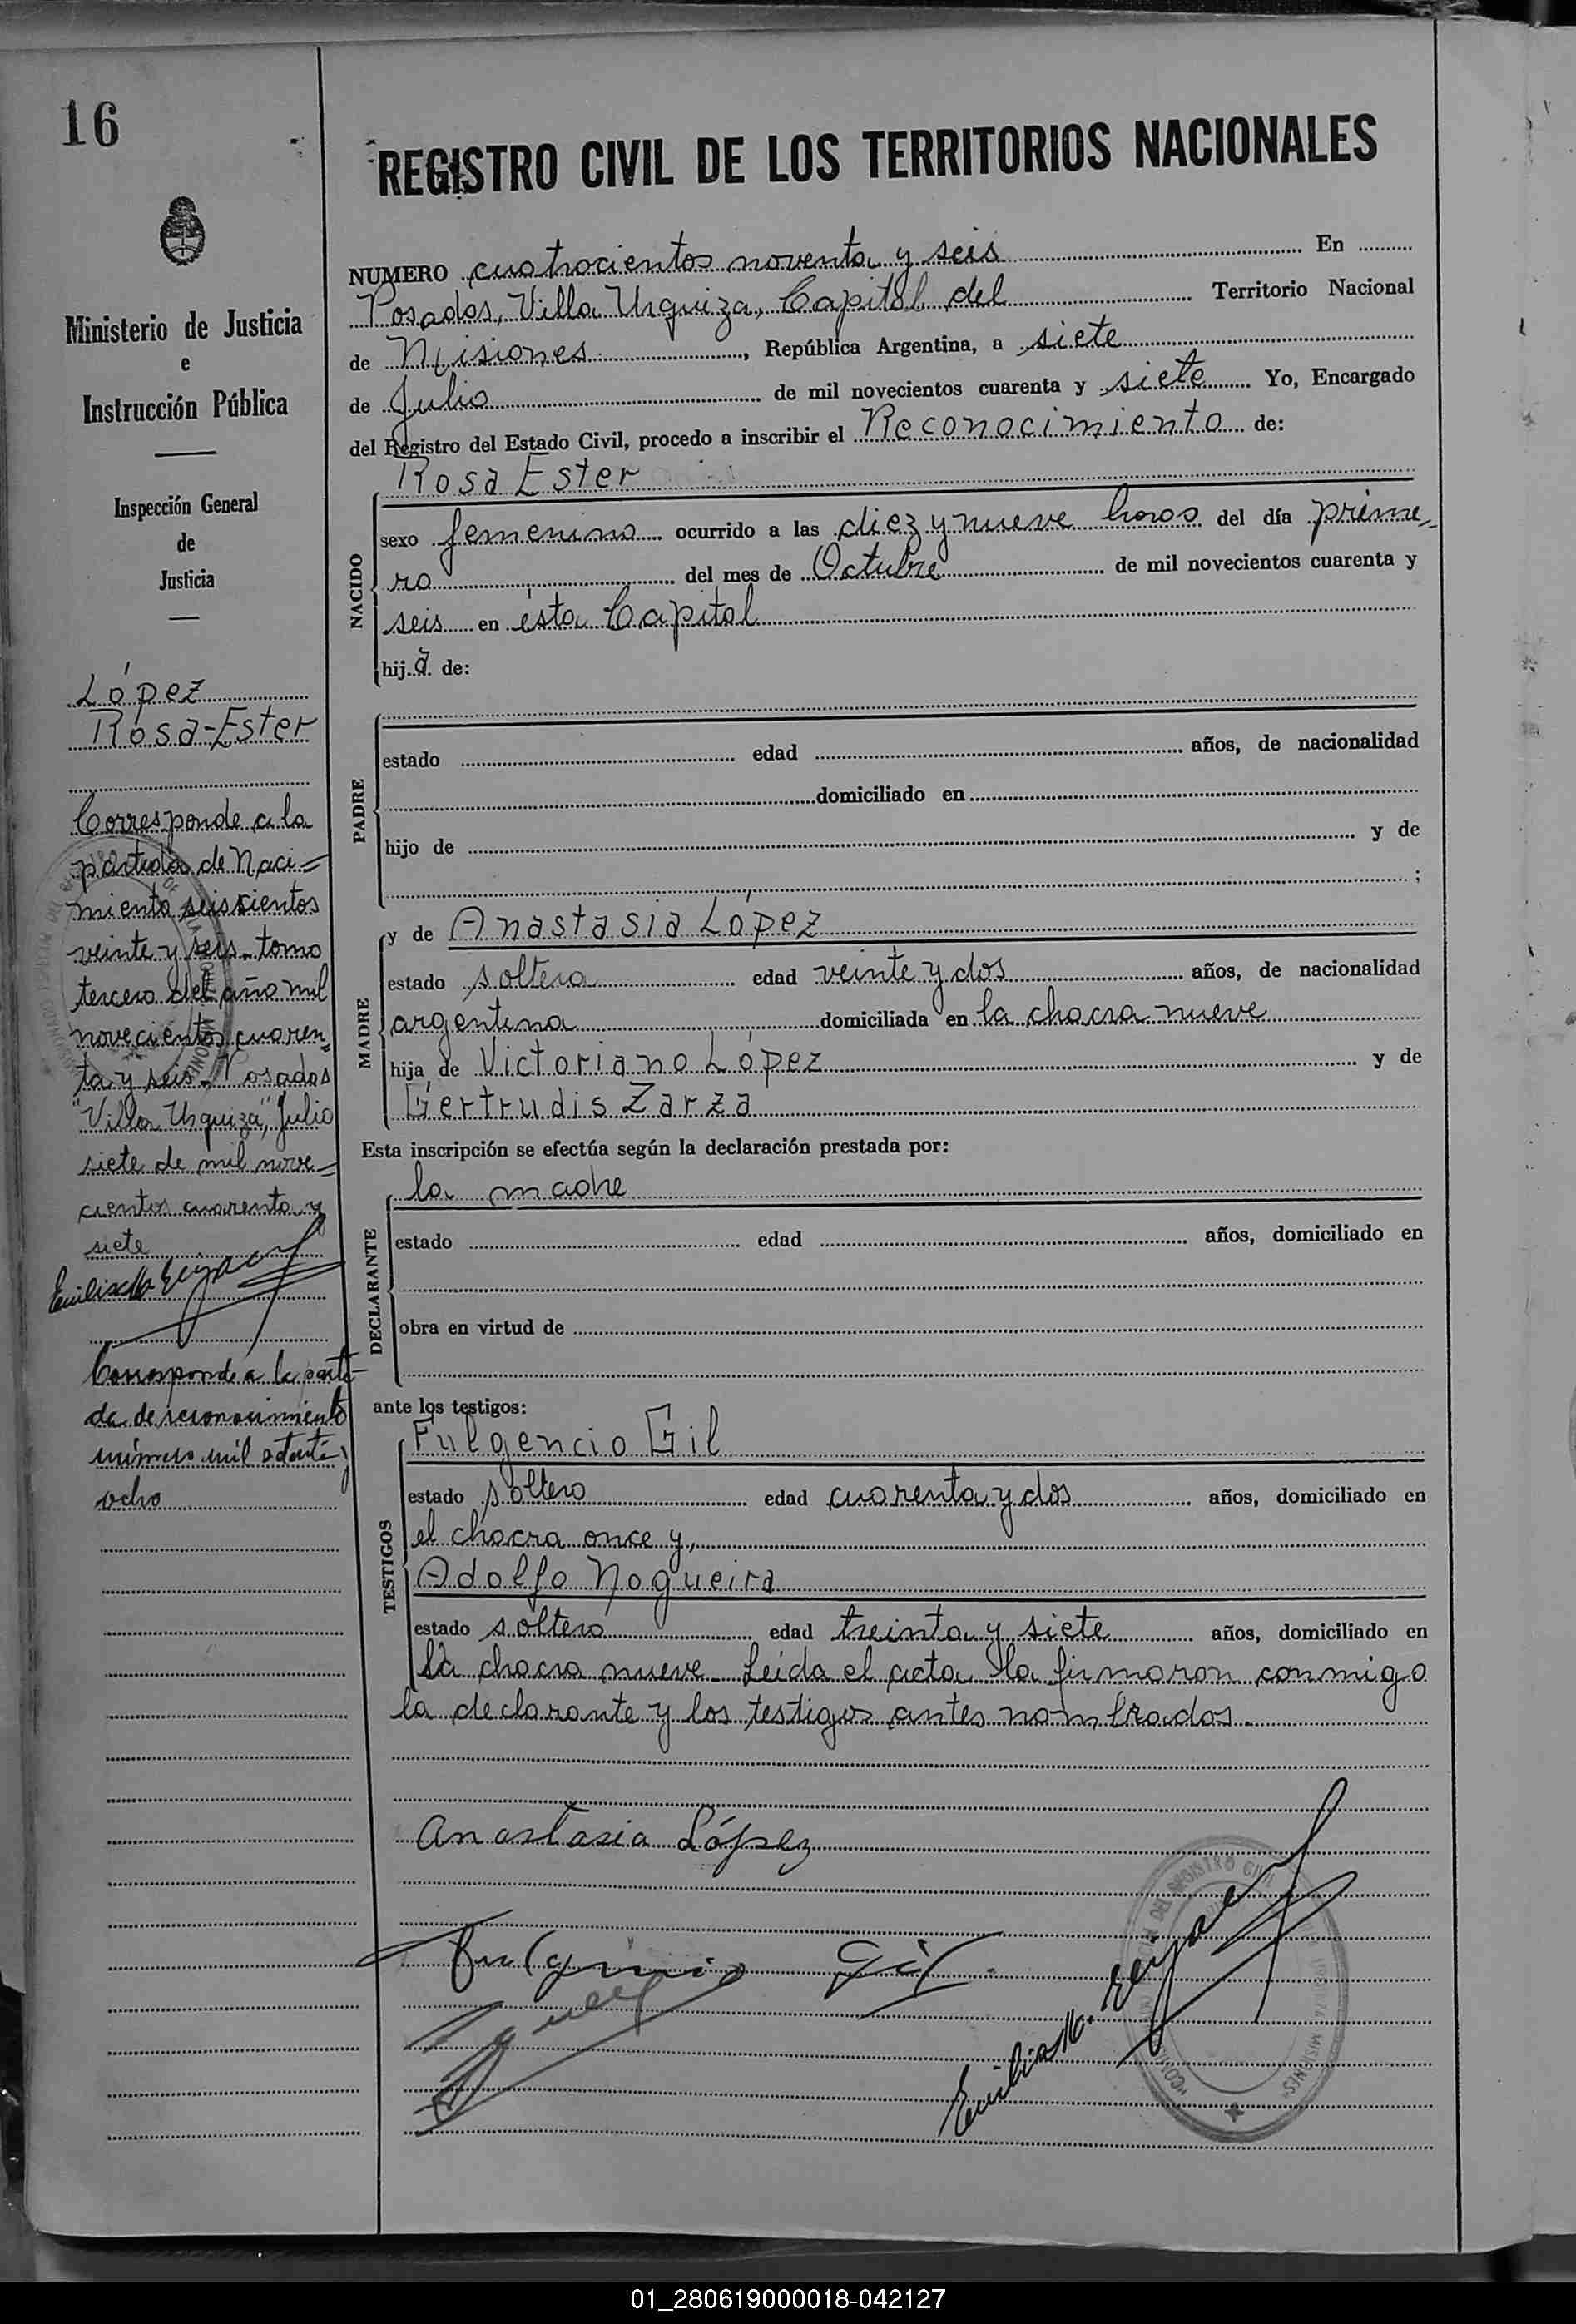 16
REGISTRO CIVIL DE LOS TERRITORIOS NACIONALES
Ministerio de Justicia
e
Instrucción Pública
Inspección General
de
Justicia
López
Rosa-Ester
Corresponde a la
partida de Naci-
miento seiscientos
veinte y seis tomo
tercero del año mil
novecientos cuaren-
ta y seis. Posadas
"Villa Urquiza", Julio
siete de mil nove-
cientos cuarenta y
siete
Corresponde a la parti-
da de reconocimiento
número mil ochenta y
ocho
NUMERO cuatrocientos noventa y seis En
Posadas, Villa Urquiza, Capital del Territorio Nacional
de Misiones, República Argentina, a siete
de Julio de mil novecientos cuarenta y siete Yo, Encargado
del Registro del Estado Civil, procedo a inscribir el Reconocimiento de:
Rosa Ester
NACIDO
sexo femenino ocurrido a las diez y nueve horas del día prime-
ro del mes de Octubre de mil novecientos cuarenta y
seis en ésta Capital
hija de:
PADRE
estado edad años, de nacionalidad
domiciliado en
hijo de y de
;
MADRE
y de Anastasia López
estado soltera edad veinte y dos años, de nacionalidad
argentina domiciliada en la chacra nueve
hija de Victoriano López y de
Gertrudis Zarza
Esta inscripción se efectúa según la declaración prestada por:
DECLARANTE
la madre
estado edad años, domiciliado en
obra en virtud de
ante los testigos:
TESTIGOS
Fulgencio Gil
estado soltero edad cuarenta y dos años, domiciliado en
el chacra once y,
Adolfo Nogueira
estado soltero edad treinta y siete años, domiciliado en
la chacra nueve. Leida el acta la firmaron conmigo
la declarante y los testigos antes nombrados.
Anastasia López
Fulgencio Gil.
01_280619000018-042127